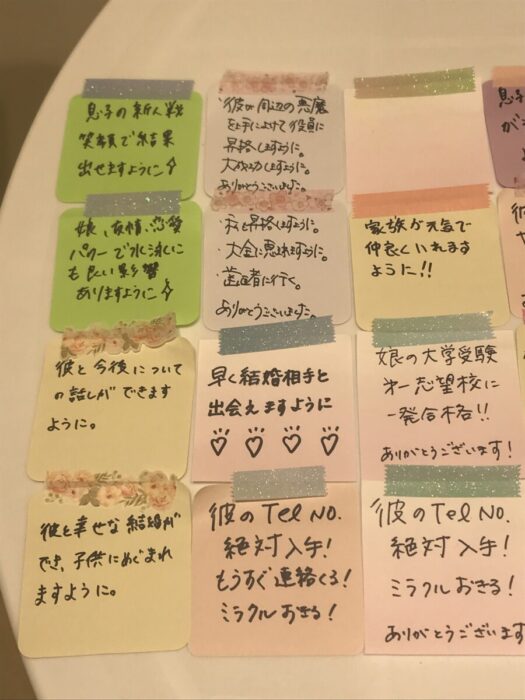 息子の新人戦
笑顔で結果
出せますように
・彼が周辺の悪魔
を上手によけて役員に
昇格しますように。
大成功しますように。
ありがとうございました。
息子
が
娘、友情、恋愛
パワーで水泳にも
も良い影響
ありますように
昇格しますように。
・大金に恵まれますように。
・歯医者に行く。
ありがとうございました。
家族が元気で
仲良くいれます
ように!!
彼と今後について
の話しができます
ように。
早く結婚相手と
出会えますように
♡ ♡ ♡ ♡
娘の大学受験
第一志望校に
一発合格!!
ありがとうございます!
彼と幸せな結婚が
でき、子供にめぐまれ
ますように。
彼のTel NO.
絶対入手!
もうすぐ連絡くる!
ミラクルおきる!
彼のTel NO.
絶対入手!
ミラクルおきる!
ありがとうございます